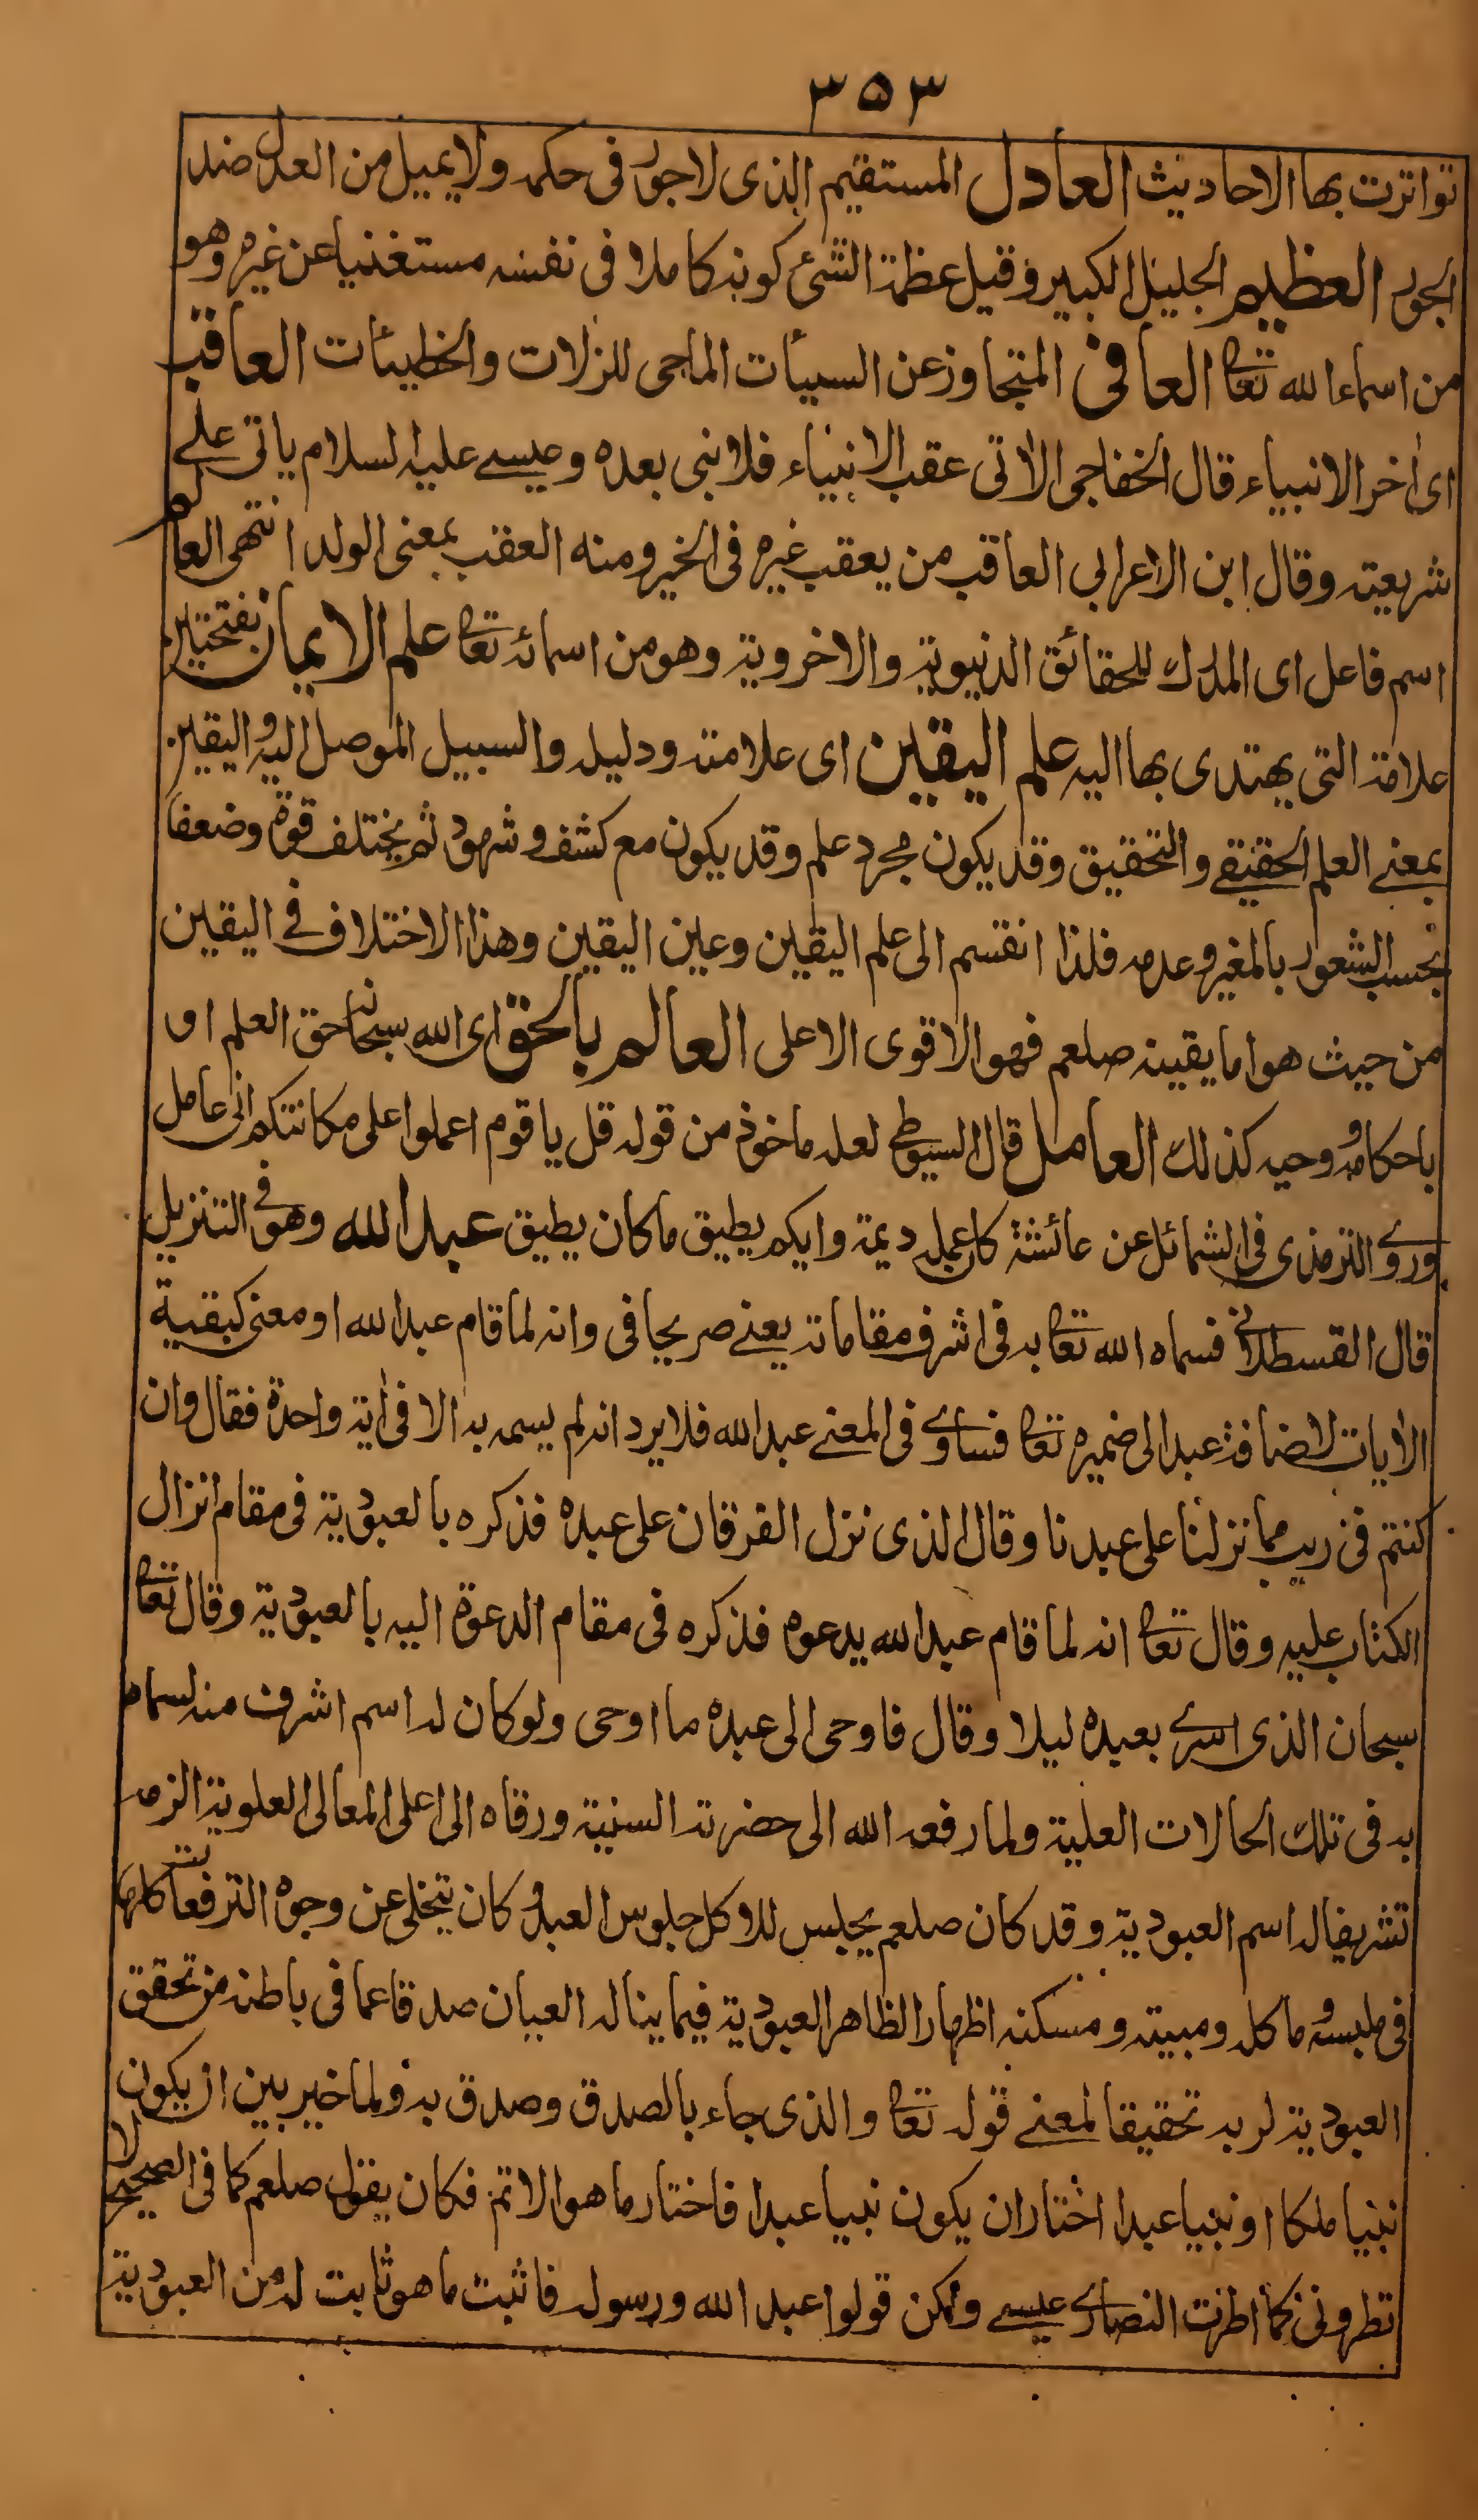 ٣٥٣
تواترت بها الاحاديث العادل المستقيم الذى لا جور فى حكمه ولا يميل من العدل ضد
الجور العظيم الجليل الكبير وقيل عظمة الشئ كونه كاملا فى نفسه مستغنيا عن غيره وهو
من اسماء الله تعا العافى المتجاوز عن السيأت الماحى للزلات والخطيئات العاقب
اى اخر الانبياء قال الخفاجى الاتى عقب الانبياء فلا نبى بعده وعيسے عليه السلام ياتى علے
شريعته وقال ابن الاعرابى العاقب من يعقب غيره فى الخير ومنه العقب بمعنى الولد انتهى العالم
اسم فاعل اى المدرك للحقائق الدنيوية والاخروية وهو من اسمائه تعا علم الايمان بفتحتين
علامة التى يهتدى بها اليه علم اليقين اى علامته ودليله والسبيل الموصل اليه واليقين
بمعنے العلم الحقيقے والتحقيق وقد يكون مجرد علم وقد يكون مع كشف وشهود ثم يختلف قوة وضعفا
بحسب الشعور بالمغير وعدمه فلذا انقسم الى علم اليقين وعين اليقين وهذا الاختلاف فے اليقين
من حيث هو اما يقينه صلعم فهو الاقوى الاعلى العالم بالحق اى الله سبحانه حق العلم او
باحكامه ووحيه كذلك العامل قال السيوطى لعله ماخوذ من قوله قل يا قوم اعملوا على مكانتكم انى عامل
وروے الترمذى فى الشمائل عن عائشة كان عمله ديمة وايكم يطيق ما كان يطيق عبد الله وهو فى التنزيل
قال القسطلانے فسماه الله تعا به فى اشرف مقاماته يعنے صريحا فى وانه لما قام عبد الله او معنى كبقية
الايات لاضافة عبد الى ضميره تعا فساوے فى المعنے عبد الله فلا يرد انه لم يسمه به الا فى اية واحدة فقال وان
كنتم فى ريب مما نزلنا على عبدنا وقال الذى نزل الفرقان على عبده فذكره بالعبودية فى مقام انزال
الكتاب عليه وقال تعا انه لما قام عبد الله يدعوه فذكره فى مقام الدعوة اليه بالعبودية وقال تعا
سبحان الذى اسرے بعبده ليلا وقال فاوحى الى عبده ما اوحى ولو كان له اسم اشرف منه لسماه
به فى تلك الحالات العلية ولما رفعه الله الى حضرته السنية ورقاه الى اعلى المعالى العلوية الزمه
تشريفا له اسم العبودية وقد كان صلعم يجلس للاكل جلوس العبد وكان يتخلى عن وجوه الترفعات كلها
فى ملبسه وماكله ومبيته ومسكنه اظهارا لظاهر العبودية فيما يناله العيان صدقا عما فى باطنه من تحقق
العبودية لربه تحقيقا لمعنے قوله تعا والذى جاء بالصدق وصدق به ولما خير بين ان يكون
نبيا ملكا او نبيا عبدا اختار ان يكون نبيا عبدا فاختار ما هو الاتم فكان يقول صلعم كما فى الصحيح لا
تطرونى كما اطرت النصارے عيسے ولكن قولوا عبد الله ورسوله فاثبت ما هو ثابت له من العبودية